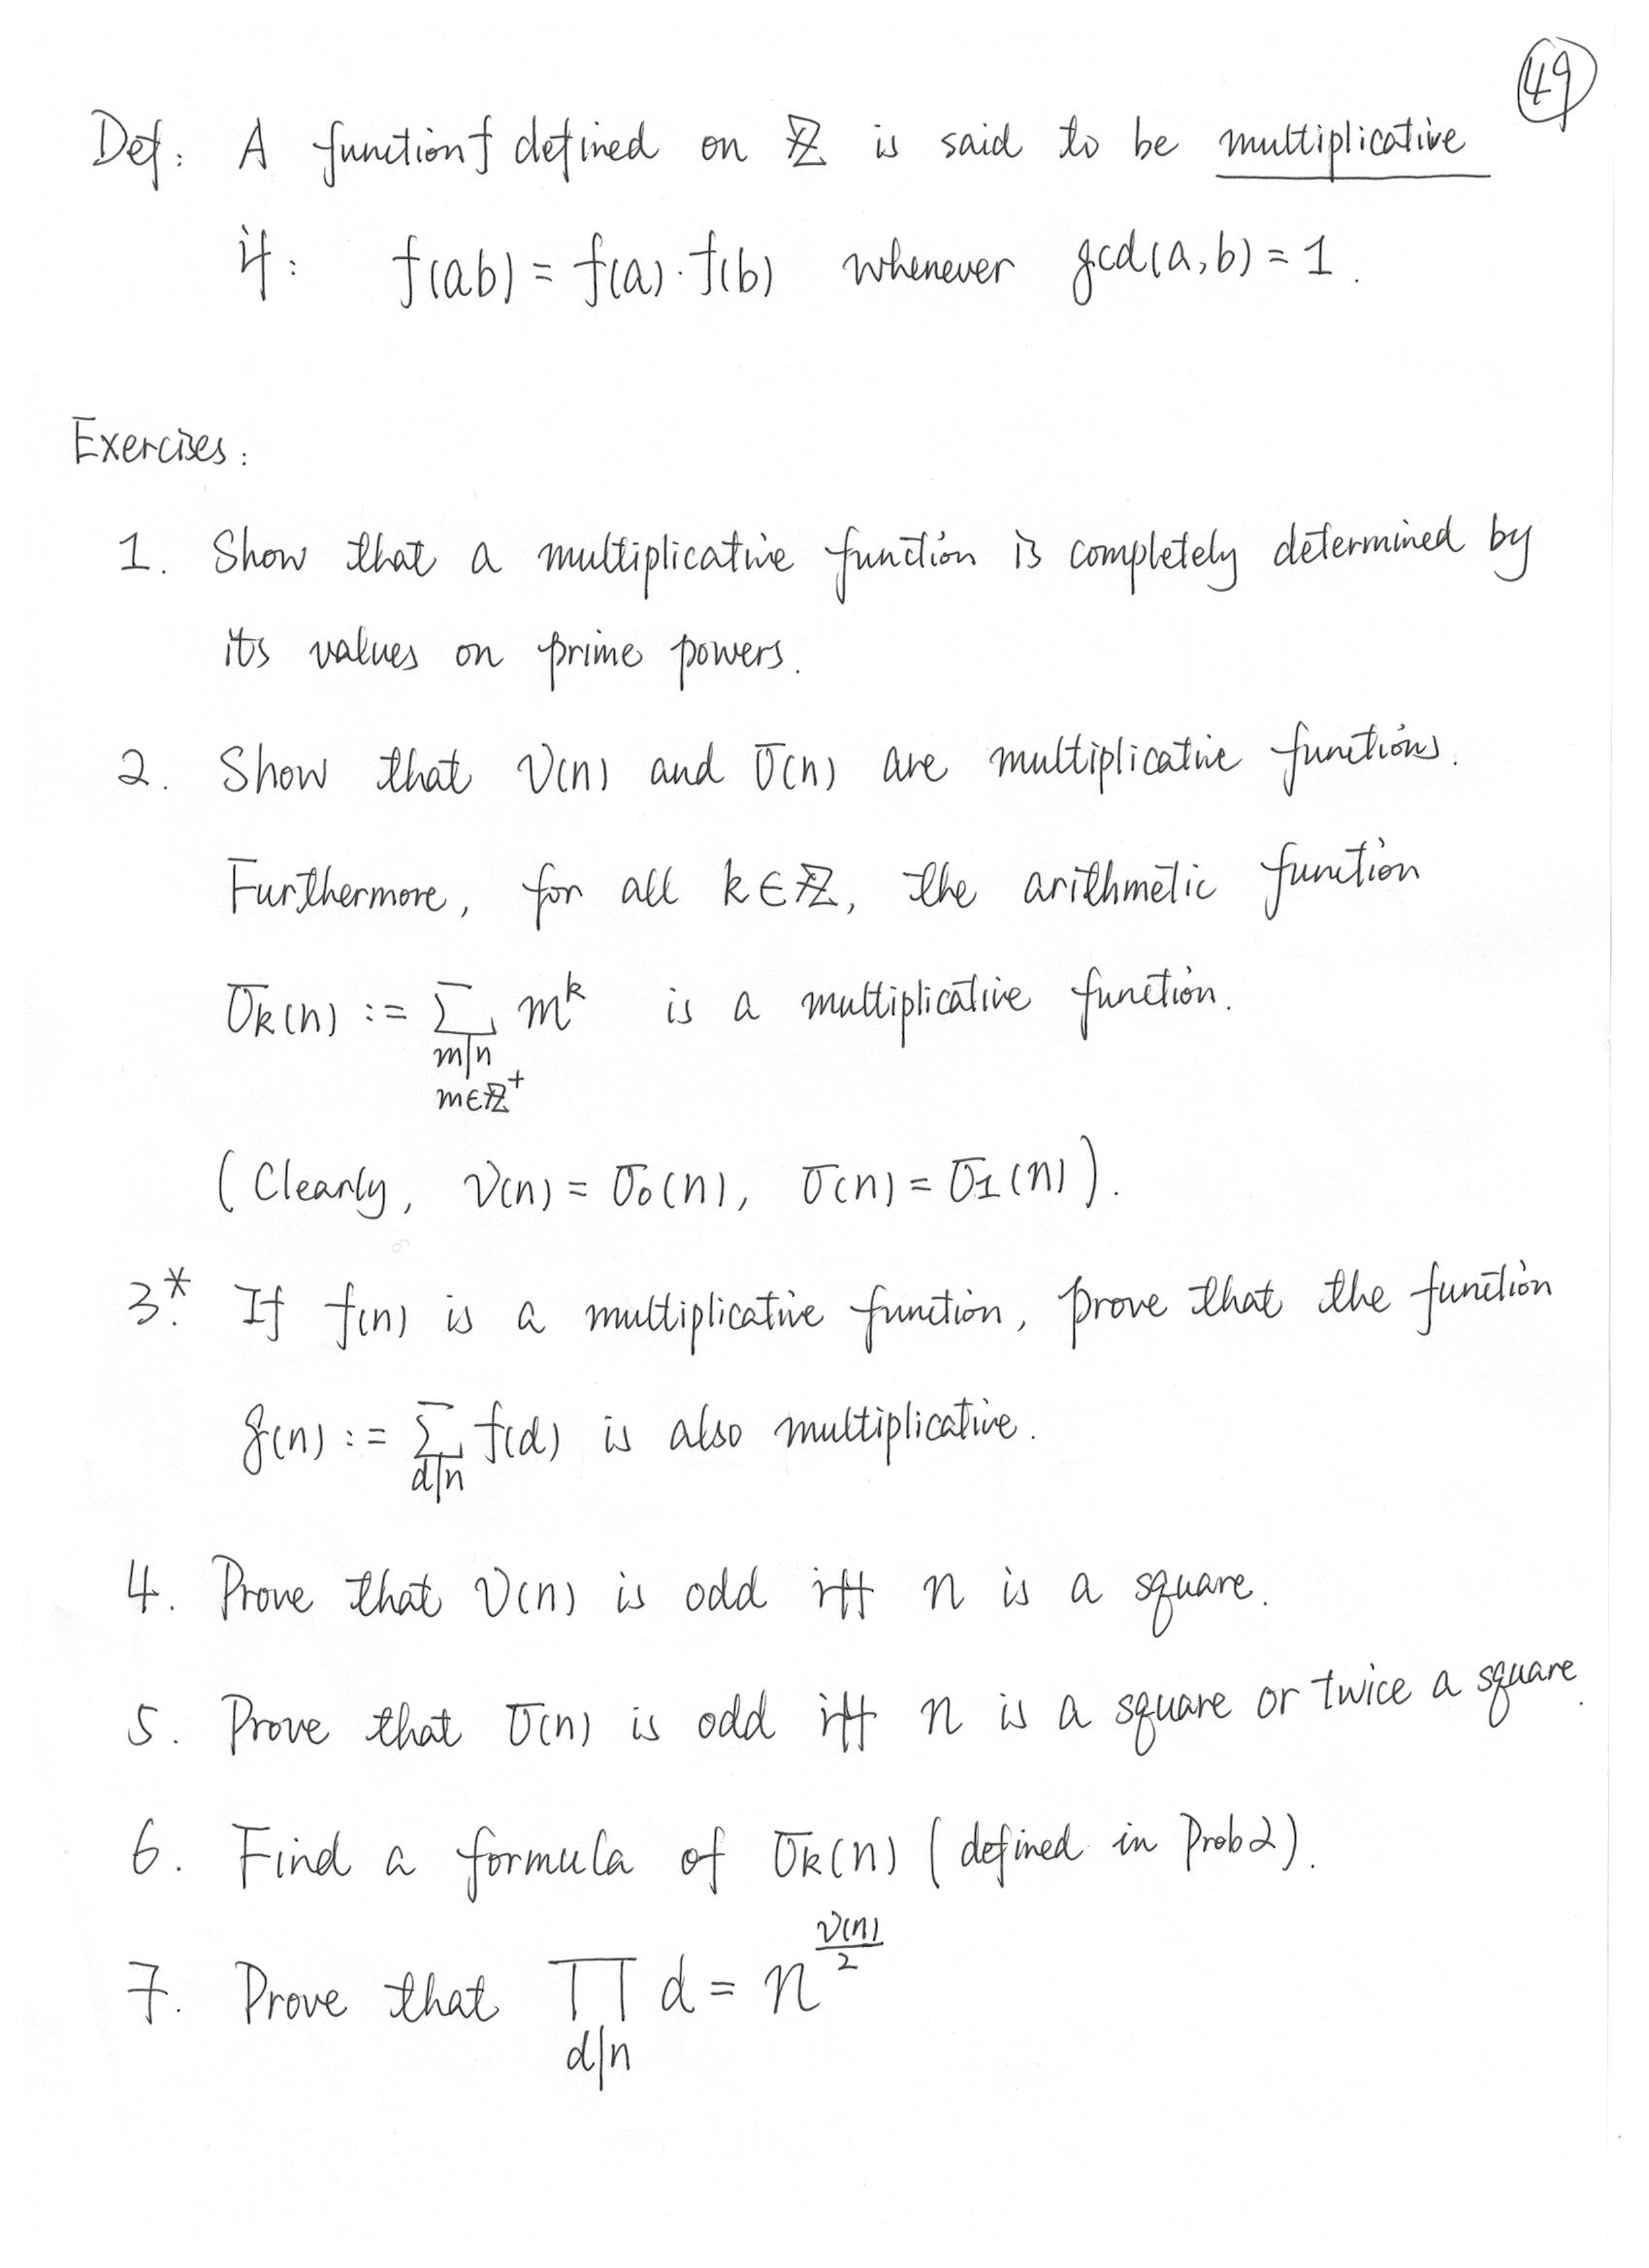 49
Def: A function f defined on ℤ is said to be multiplicative
if: f(ab) = f(a)·f(b) whenever gcd(a,b) = 1.
Exercises:
1. Show that a multiplicative function is completely determined by
its values on prime powers.
2. Show that ν(n) and σ(n) are multiplicative functions.
Furthermore, for all k∈ℤ, the arithmetic function
σk(n) := ∑ m^k is a multiplicative function.
m|n
m∈ℤ⁺
(Clearly, ν(n) = σ₀(n), σ(n) = σ₁(n)).
3.* If f(n) is a multiplicative function, prove that the function
g(n) := ∑ f(d) is also multiplicative.
d|n
4. Prove that ν(n) is odd iff n is a square.
5. Prove that σ(n) is odd iff n is a square or twice a square.
6. Find a formula of σk(n) (defined in Prob2).
7. Prove that ∏ d = n^(ν(n)/2)
d|n